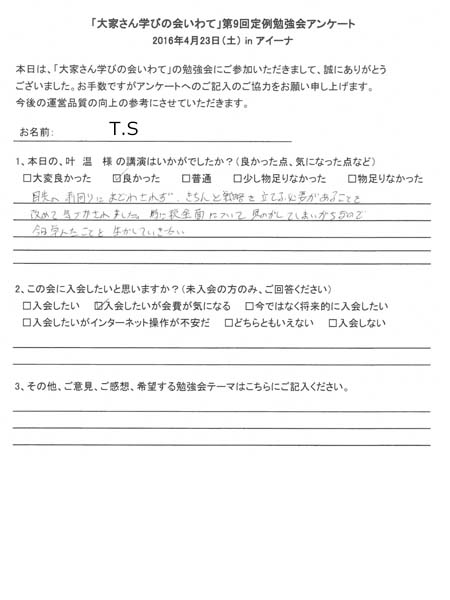 「大家さん学びの会いわて」第9回定例勉強会アンケート
2016年4月23日(土) in アイーナ
本日は、「大家さん学びの会いわて」の勉強会にご参加いただきまして、誠にありがとう
ございました。お手数ですがアンケートへのご記入のご協力をお願い申し上げます。
今後の運営品質の向上の参考にさせていただきます。
お名前: T.S
1、本日の、叶 温 様 の講演はいかがでしたか?(良かった点、気になった点など)
□大変良かった ☑良かった □普通 □少し物足りなかった □物足りなかった
目先の利回りにまどわされず、きちんと戦略を立てる必要があることを
改めて気づかされました。特に税金面について見のがしてしまいがちなので
今日学んだことを生かしていきたい
2、この会に入会したいと思いますか?(未入会の方のみ、ご回答ください)
□入会したい ☑入会したいが会費が気になる □今ではなく将来的に入会したい
□入会したいがインターネット操作が不安だ □どちらともいえない □入会しない
3、その他、ご意見、ご感想、希望する勉強会テーマはこちらにご記入ください。